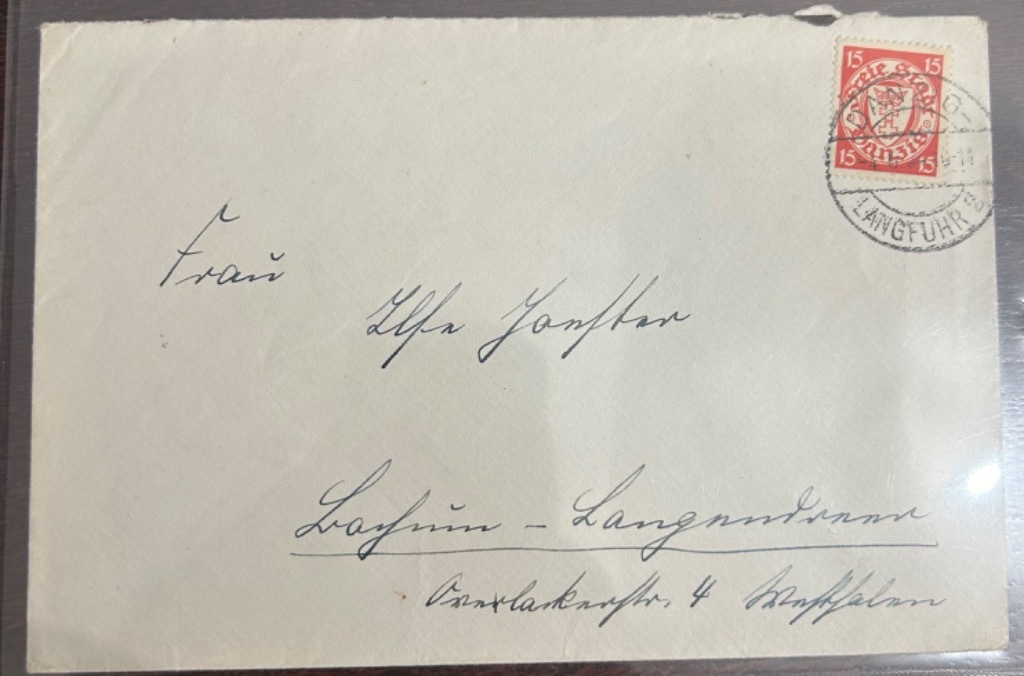 15 15
Freie Stadt
Danzig
15 15
DANZIG-
LANGFUHR
Frau
Ilse
Bochum - Langendreer
Overlackerstr. 4 Westfalen